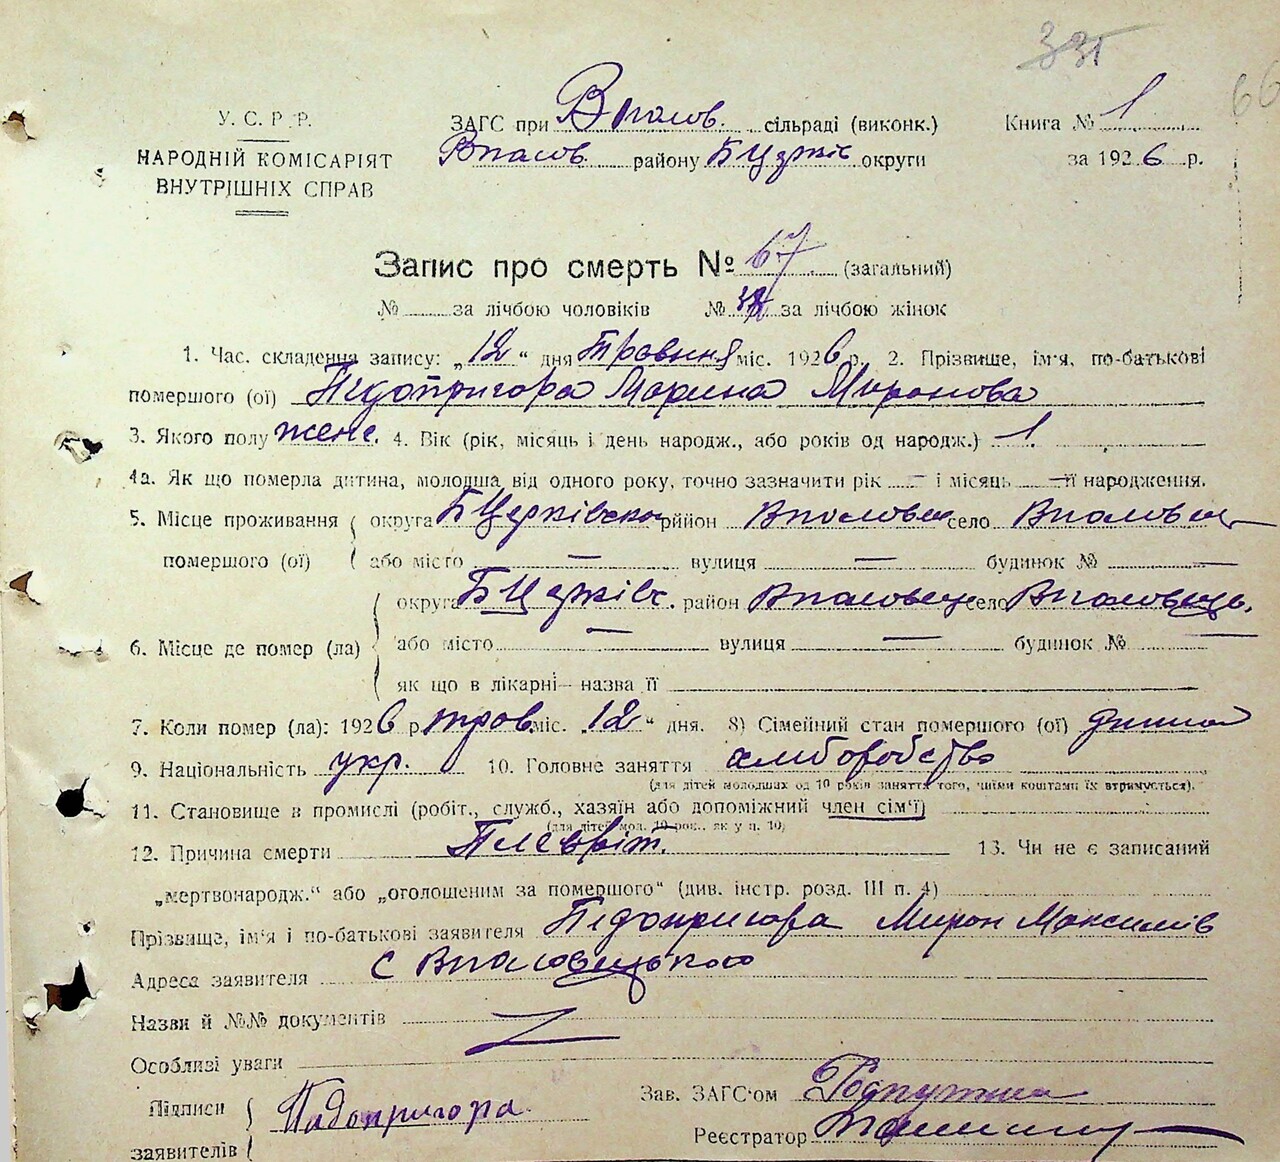 331
66
У. С. Р. Р.
НАРОДНІЙ КОМІСАРІЯТ
ВНУТРІШНІХ СПРАВ
ЗАГС при сільраді (виконк.)
району БЦерків округи
Книга № 1
за 1926 р.
Запис про смерть № 67 (загальний)
№ за лічбою чоловіків № за лічбою жінок
1. Час складення запису: „12“ дня Травня міс. 1926 р. 2. Прізвище, ім'я, по-батькові
помершого (ої) Підопригора Марина Миронова
3. Якого полу жене. 4. Вік (рік, місяць і день народж., або років од народж.) 1.
4а. Як що померла дитина, молодша від одного року, точно зазначити рік — і місяць — її народження.
5. Місце проживання округа БЦерківско район село
помершого (ої) або місто — вулиця — будинок № —
округа БЦерківс. район село
6. Місце де помер (ла) або місто — вулиця — будинок № —
як що в лікарні – назва її
7. Коли помер (ла): 1926 р. трав. міс. „12“ дня. 8) Сімейний стан помершого (ої)
9. Національність укр. 10. Головне заняття хліборобство
(для дітей молодших од 10 років заняття того, чиїми коштами їх втримується).
11. Становище в промислі (робіт., служб., хазяїн або допоміжний член сім'ї)
(для дітей мол. 10 рок., як у п. 10)
12. Причина смерти Плевріт. 13. Чи не є записаний
„мертвонародж.“ або „оголошеним за помершого“ (див. інстр. розд. III п. 4)
Прізвище, ім'я і по-батькові заявителя Підопригора Мирон Максимів
Адреса заявителя с
Назви й №№ документів
Особливі уваги
Підписи
заявителів Падопригора
Зав. ЗАГС'ом
Реєстратор